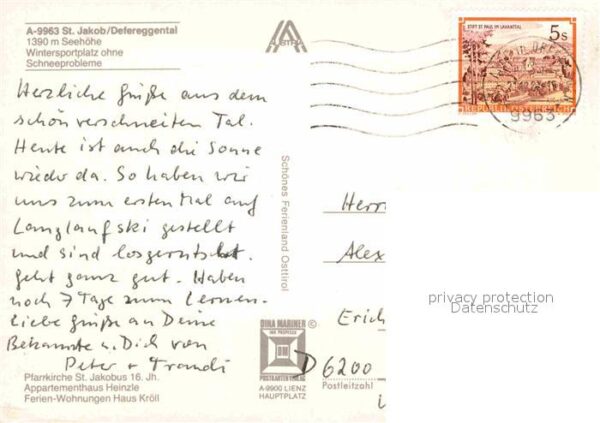 A-9963 St. Jakob/Defereggental
1390 m Seehöhe
Wintersportplatz ohne
Schneeprobleme
AUSTRIA
STIFT ST. PAUL IM LAVANTTAL
5s
REPUBLIK ÖSTERREICH
9963
Herzliche Grüße aus dem
schön verschneiten Tal.
Heute ist auch die Sonne
wieder da. So haben wir
uns zum ersten Mal auf
Langlaufski gestellt
und sind losgerutscht.
geht ganz gut. Haben
noch 7 Tage zum Lernen.
Liebe Grüße an Deine
Bekannte u. Dich von
Peter + Traudi
Pfarrkirche St. Jakobus 16. Jh.
Appartementhaus Heinzle
Ferien-Wohnungen Haus Kröll
Schönes Ferienland Osttirol
DINA MARINER ©
DM
POSTKARTENVERLAG
A-9900 LIENZ
HAUPTPLATZ
Herrn
Alex
Erich
D 6200
Postleitzahl
privacy protection
Datenschutz